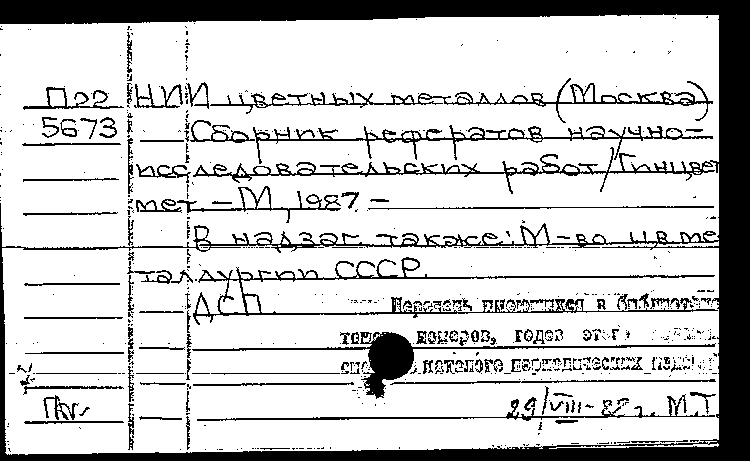 П22 НИИ цветных металлов (Москва)
5673 Сборник рефератов научно-
исследовательских работ/Гинцвет
мет. – М., 1987 –
В надзаг. также: М-во цв. ме
таллургии СССР.
ДСП. Перечень имеющихся в библиотеке
номеров, годов этого
каталоге периодических
29/VIII-87 г. М.Т.